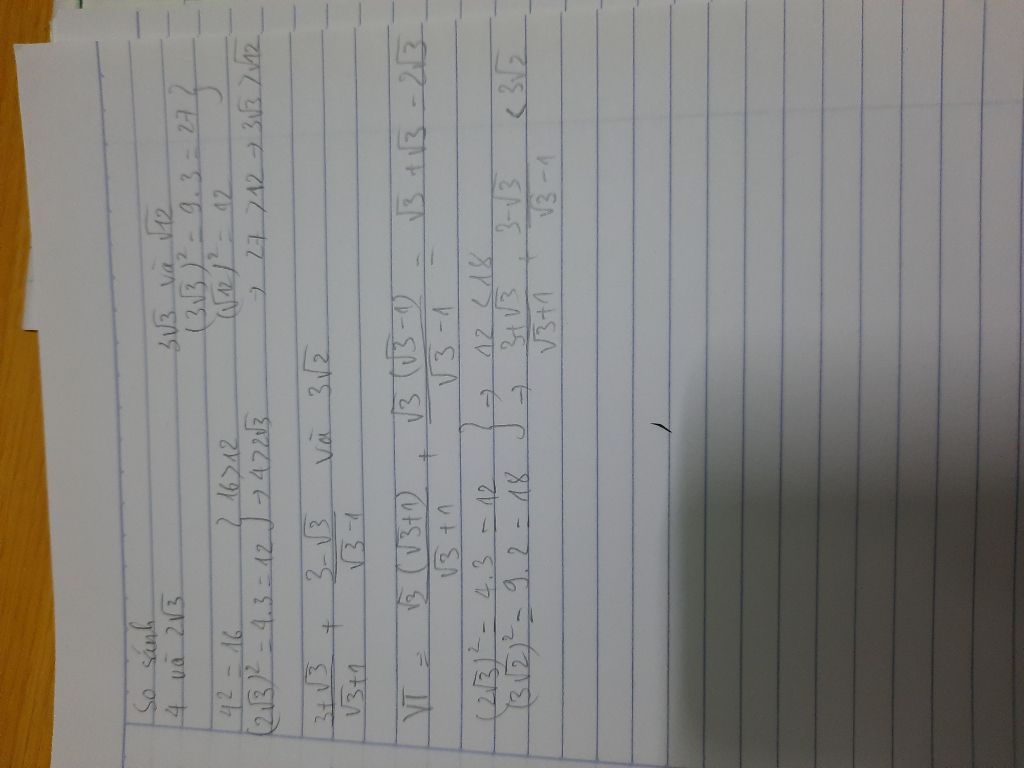 So sánh
4 và 2√3
3√3 và √12
4² = 16 } 16>12
(2√3)² = 4.3 = 12 } → 4>2√3
(3√3)² = 9.3 = 27 }
(√12)² = 12
→ 27 > 12 → 3√3 > √12
3+√3 / √3+1 + 3-√3 / √3-1 và 3√2
VT = √3(√3+1) / √3+1 + √3(√3-1) / √3-1 = √3 + √3 = 2√3
(2√3)² = 4.3 = 12 } → 12 < 18
(3√2)² = 9.2 = 18 } → 3+√3 / √3+1 + 3-√3 / √3-1 < 3√2